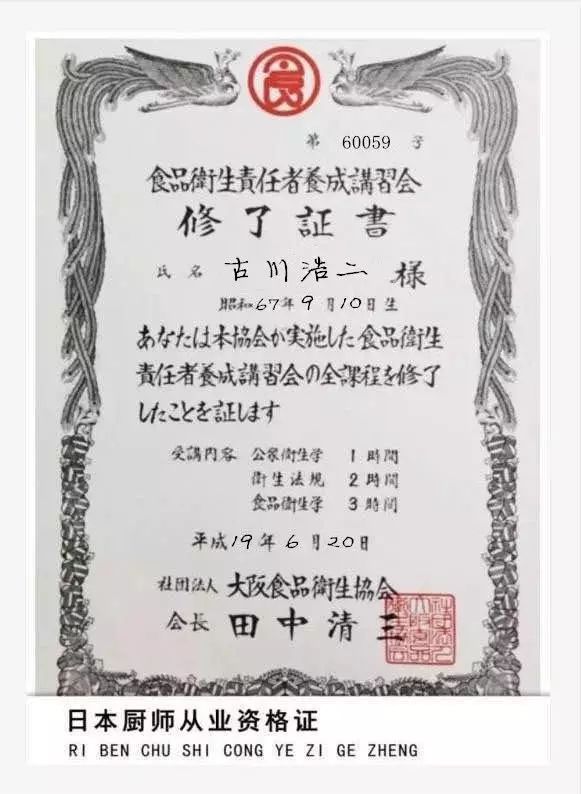 食
第 60059 号
食品衛生責任者養成講習会
修了証書
氏名 古川浩二 様
昭和67年9月10日生
あなたは本協会が実施した食品衛生
責任者養成講習会の全課程を修了
したことを証します
受講内容 公衆衛生学 1時間
衛生法規 2時間
食品衛生学 3時間
平成19年6月20日
社団法人 大阪食品衛生協会
会長 田中清三
日本厨师从业资格证
RI BEN CHU SHI CONG YE ZI GE ZHENG